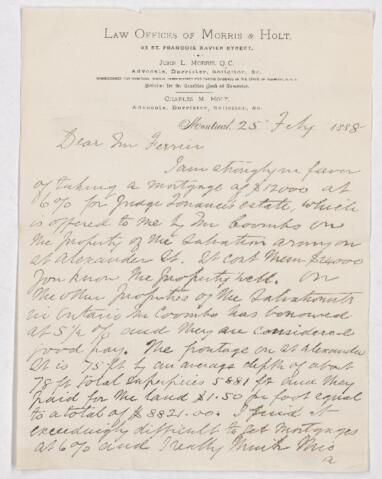 LAW OFFICES OF MORRIS & HOLT,
63 ST. FRANÇOIS XAVIER STREET.
JOHN L. MORRIS, Q.C.
Advocate, Barrister, Solicitor, &c.
Solicitor for the Canadian Bank of Commerce.
CHARLES M. HOLT,
Advocate, Barrister, Solicitor, &c.
Montreal, 25 Feby 1888
Dear Mr Ferrier
I am strongly in favor
of taking a mortgage of $12000 at
6% for Judge Torrance's estate, which
is offered to me by Mr Coombs on
the property of the Salvation army on
St Alexander St. It cost them $24000
You know the property well. On
the other properties of the Salvationists
in Ontario Mr Coombs has borrowed
at 5½ % and they are considered
good pay. The frontage on St Alexander
St is 75 ft by an average depth of about
78 ft total superficies 5881 ft and they
paid for the land $1.50 per foot equal
to a total of $8821.00. I find it
exceedingly difficult to get mortgages
at 6% and I really think this
a